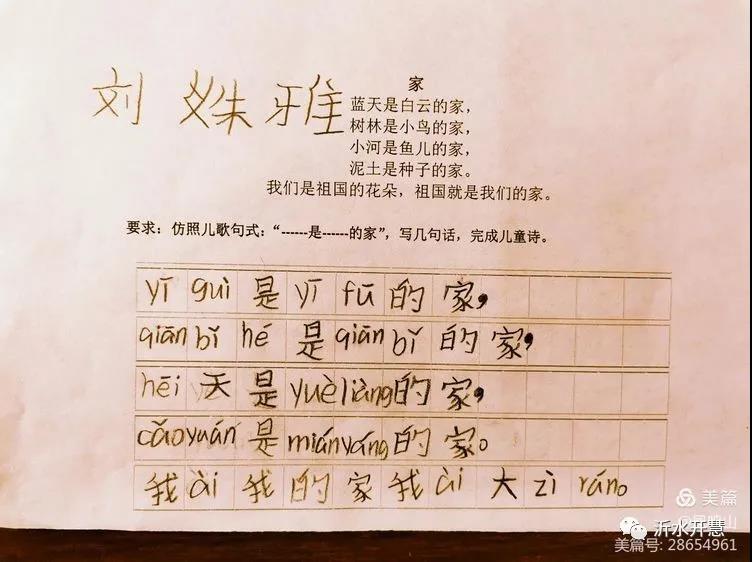 家
刘姝雅
蓝天是白云的家，
树林是小鸟的家，
小河是鱼儿的家，
泥土是种子的家。
我们是祖国的花朵，祖国就是我们的家。
要求：仿照儿歌句式：“------是------的家”，写几句话，完成儿童诗。
yī guì 是 yī fū 的 家，
qiān bǐ hé 是 qiān bǐ 的 家，
hēi 天 是 yuèliàng 的 家，
cǎoyuán 是 miányáng 的 家。
我 ài 我 的 家 我 ài 大 zì rán。
美篇
沂水开慧
美篇号: 28654961